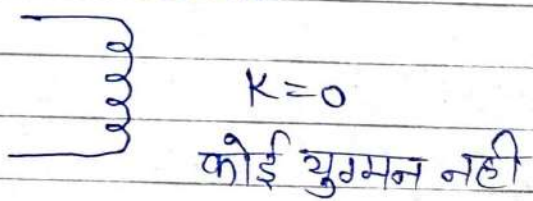 K=0
कोई युग्मन नही